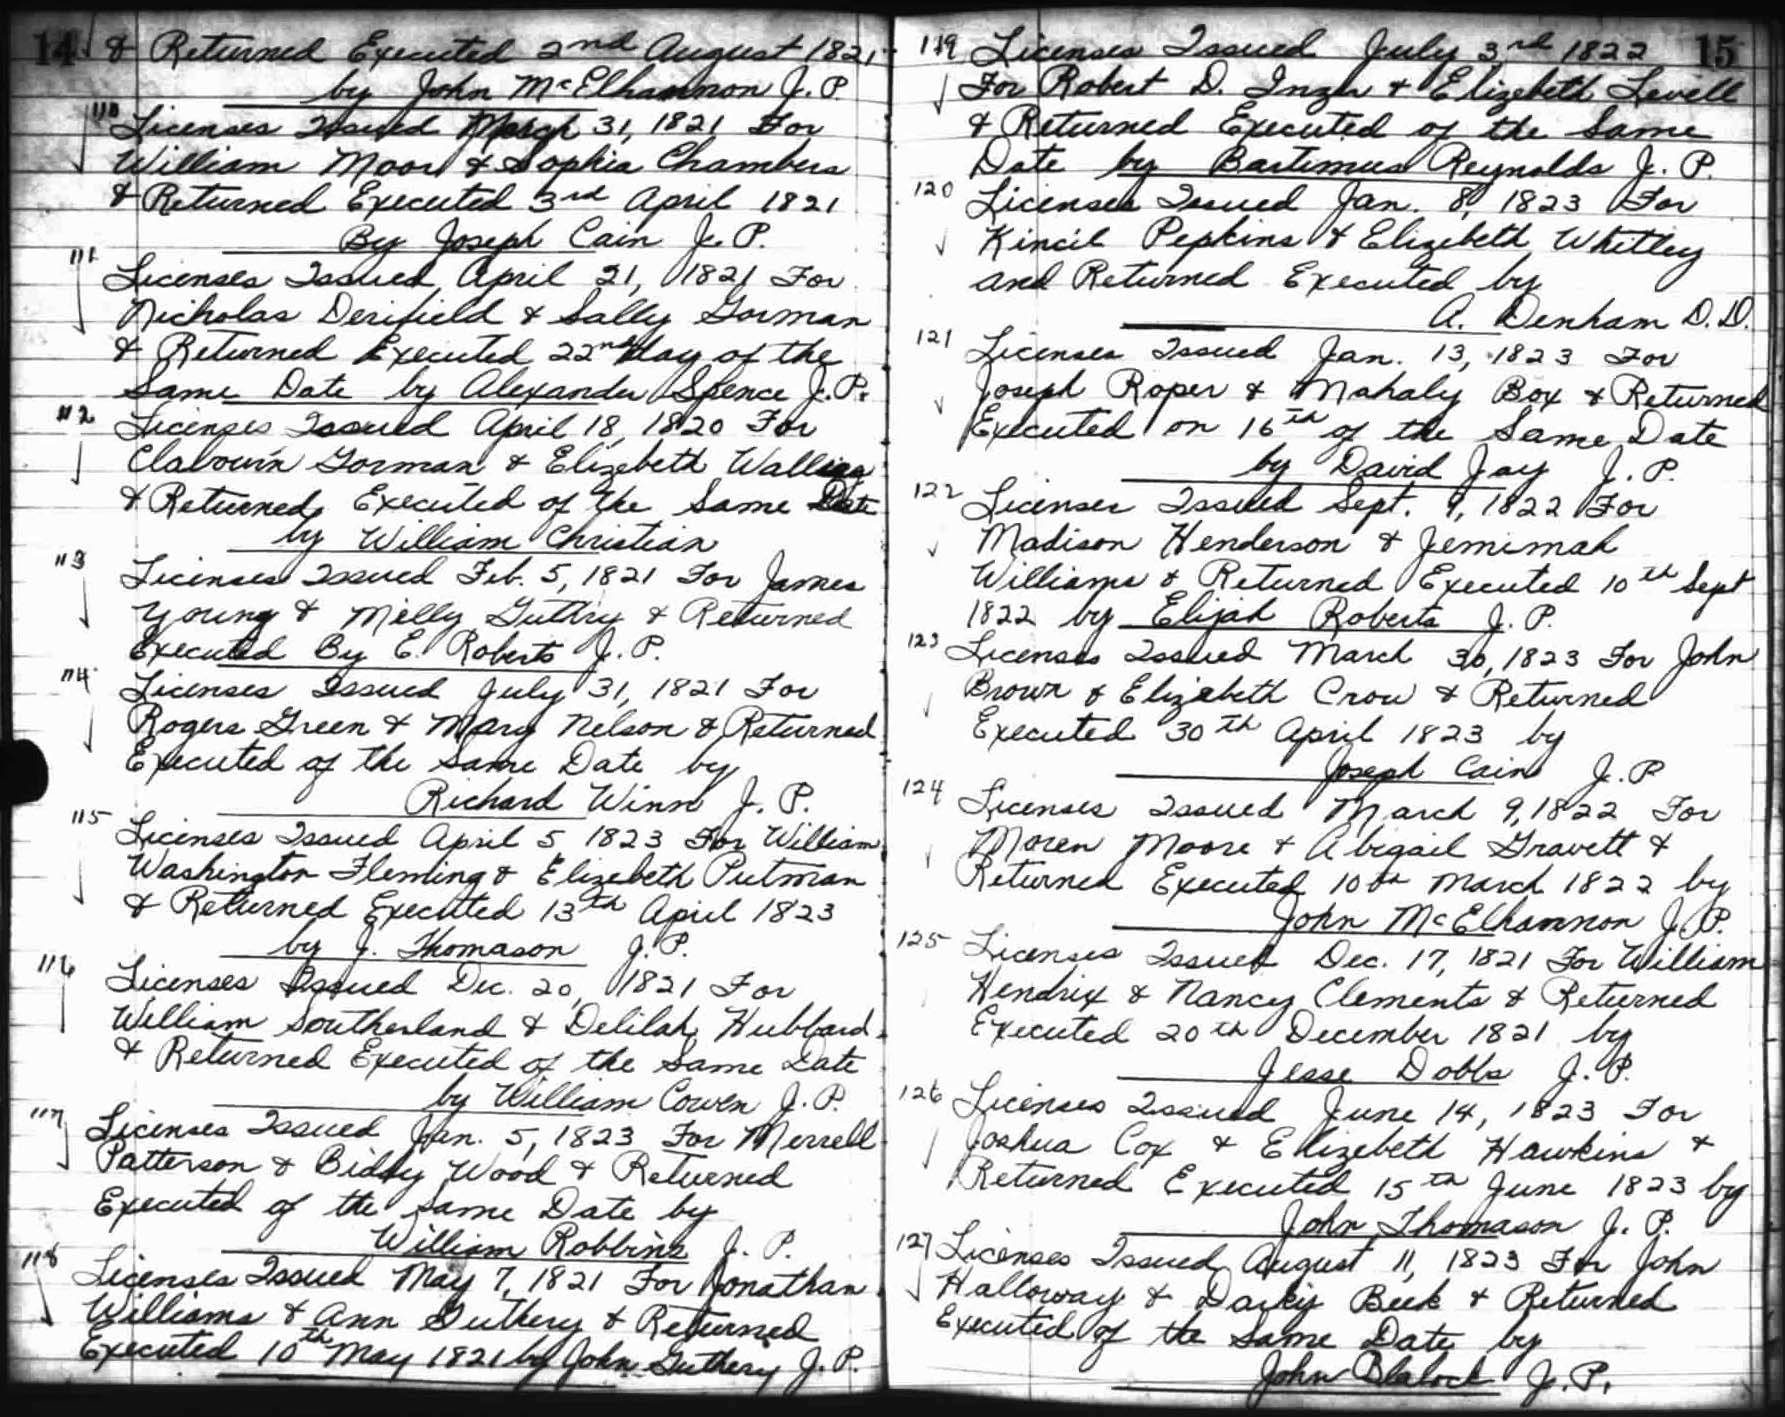 14 & Returned Executed 2nd August 1821
by John McElhannon J. P.
110 Licenses Issued March 31, 1821 For
William Moor & Sophia Chambers
& Returned Executed 3rd April 1821
By Joseph Cain J. P.
111 Licenses Issued April 21, 1821 For
Nicholas Derifield & Sally Gorman
& Returned Executed 22nd day of the
Same Date by Alexander Spence J. P.
112 Licenses Issued April 18, 1820 For
Clabourn Gorman & Elizebeth
& Returned Executed of the Same Date
by William Christian
113 Licenses Issued Feb. 5, 1821 For James
Young & Milly Guthry & Returned
Executed By E. Roberts J. P.
114 Licenses Issued July 31, 1821 For
Rogers Green & Mary Nelson & Returned
Executed of the Same Date by
Richard Winn J. P.
115 Licenses Issued April 5 1823 For William
Washington Fleming & Elizebeth Putman
& Returned Executed 13th April 1823
by J. Thomason J. P.
116 Licenses Issued Dec. 20, 1821 For
William Southerland & Delilah Hubbard
& Returned Executed of the Same Date
by William Cowen J. P.
117 Licenses Issued Jan. 5, 1823 For Merrell
Patterson & Biddy Wood & Returned
Executed of the Same Date by
William Robbins J. P.
118 Licenses Issued May 7, 1821 For Jonathan
Williams & Ann Guthery & Returned
Executed 10th May 1821 by John Guthery J. P.
119 Licenses Issued July 3rd 1822 15
For Robert D. & Elizebeth Levell
& Returned Executed of the Same
Date by Bartimus Reynolds J. P.
120 Licenses Issued Jan. 8, 1823 For
Kincil Pepkins & Elizebeth Whitley
and Returned Executed by
A. Denham D. D.
121 Licenses Issued Jan. 13, 1823 For
Joseph Roper & Mahaly Box & Returned
Executed on 16th of the Same Date
by David Jay J. P.
122 Licenses Issued Sept. 9, 1822 For
Madison Henderson & Jemimah
Williams & Returned Executed 10th Sept
1822 by Elijah Roberts J. P.
123 Licenses Issued March 30, 1823 For John
Brown & Elizabeth Crow & Returned
Executed 30th April 1823 by
Joseph Cain J. P
124 Licenses Issued March 9, 1822 For
Moren Moore & Abigail Gravett &
Returned Executed 10th March 1822 by
John McElhannon J. P.
125 Licenses Issued Dec. 17, 1821 For William
Hendrix & Nancy Clements & Returned
Executed 20th December 1821 by
Jesse Dobbs J. P.
126 Licenses Issued June 14, 1823 For
Joshua Cox & Elizebeth Hawkins &
Returned Executed 15th June 1823 by
John Thomason J. P.
127 Licenses Issued August 11, 1823 For John
Halloway & Beek & Returned
Executed of the Same Date by
John Blalock J. P.